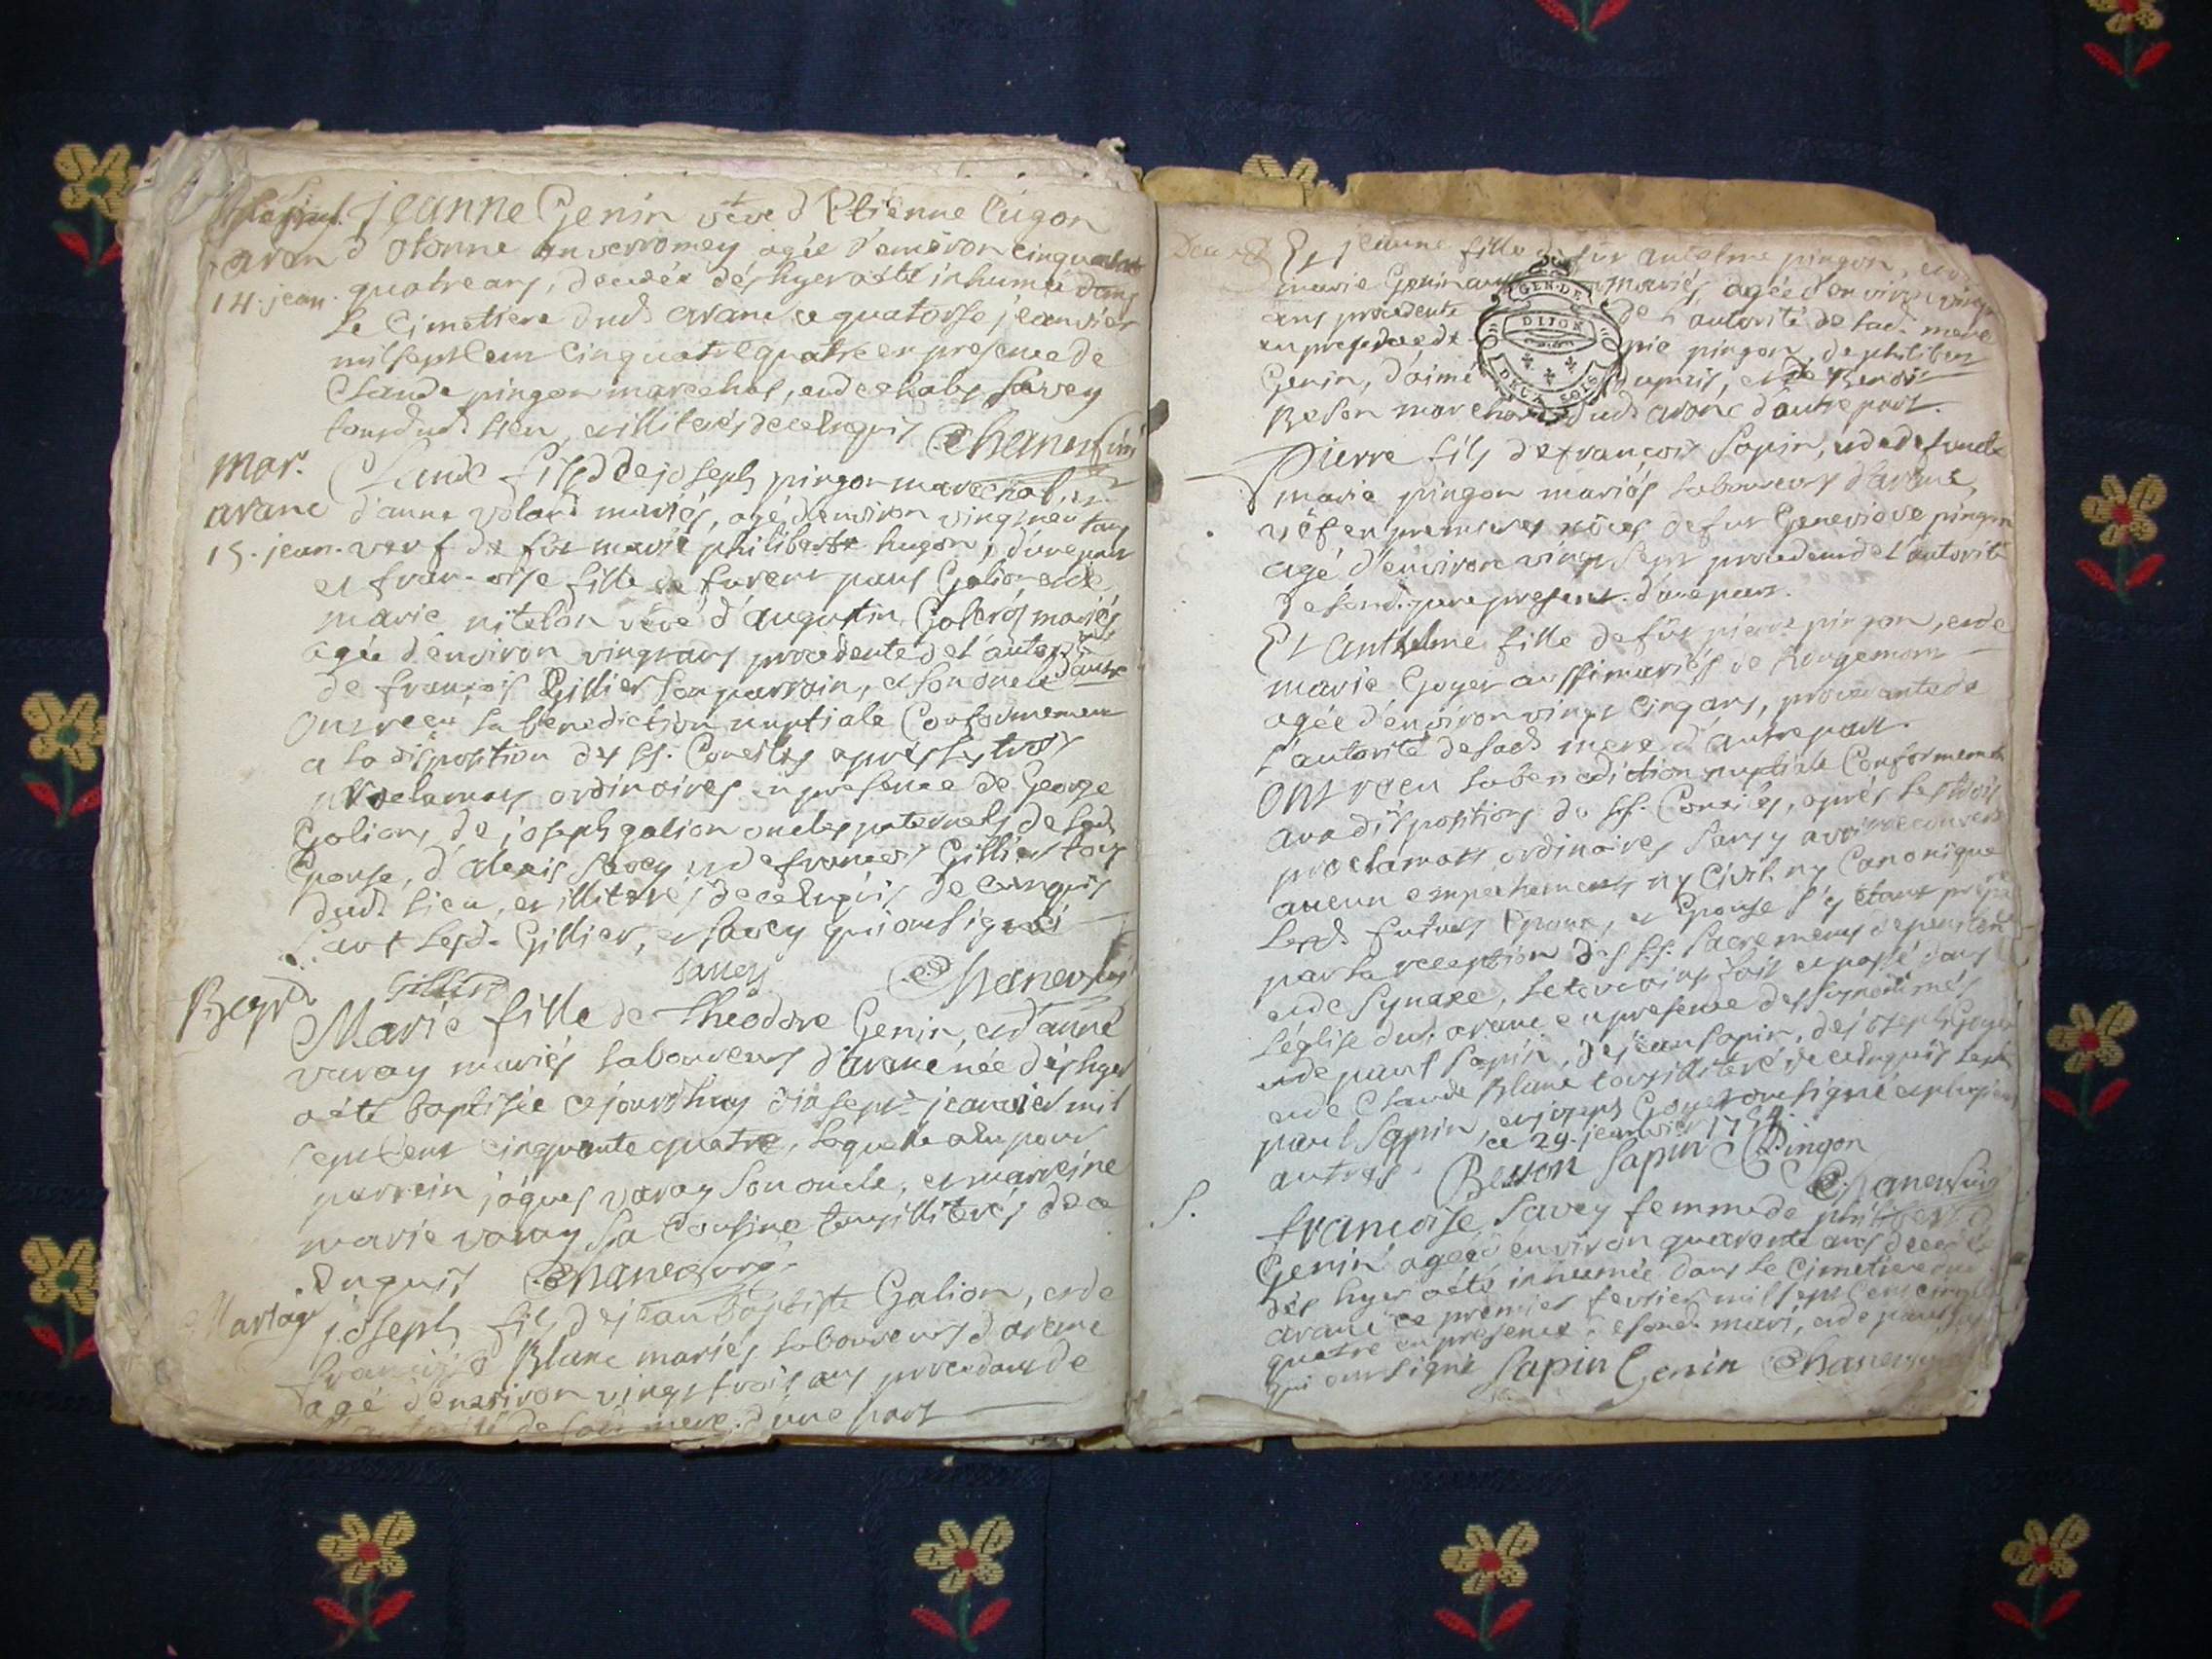 Jeanne Genin vëve d'Etienne Cugon
aran d'otonne en verromey agée d'environ cinquante
14. jean. quatre ans, decedée dés hyer a été inhumée dans
le cimetiere dud. arane ce quatorse jeanvier
mil sept cent cinquante quatre en presence de
Claude pingon marechal, et de Savey
tous dud. lieu, et illiterés de ce enquis
mar. Claude fils de joseph pingon marechal, et
arane d'anne volard mariés, agé d'environ vingt neuf ans
15. jean. veuf de fue marie philiberte hugon, d'une part
et francoise fille de furent paul Galion, et de
marie nitelon vëve d'augustin mariés,
agée d'environ vingt ans procedente de l'autorité
de francois Gillier son parrain, et son oncle d'autre
Ont reçu la benediction nuptiale Conformement
a la disposition des SS. Conciles apres les trois
proclamaõs ordinaires en presence de George
Galion, de joseph galion oncles paternels de lad.
Epouse, d'alexis Savey et de francois Gillier tous
dud. lieu, et illiterés de ce enquis de ce enquis
sauf lesd. Gillier, et Savey qui ont signé
Gillier Savey
Bapt. Marie fille de Theodore Genin, et d'anne
varay mariés laboureurs d'arane née dés hyer
a été baptisée ce jourdhuy dix sept jeanvier mil
sept cent cinquante quatre, laquelle a eu pour
parrein jâques varay son oncle, et marreine
marie varay sa Cousine tous illiterés de ce
enquis
Mariage joseph fils de jean baptiste Galion, et de
francoise Blanc mariés laboureurs d'arane
agé d'environ vingt trois ans procedant de
de sad. mere d'une part
Et jeanne fille de fût antelme pingon, et de
marie Genin mariés, agée d'environ vingt
ans procedente de l'autorité de sad. mere
en presence de pingon, de philibert
GEN. DE
DIJON
DEUX SOLS
Genin, d'aimé et de Benoit
Beson marchand dud. arane d'autre part.
Pierre fils de francois Sapin, et de defuncte
marie pingon mariés laboureurs d'arane,
vëf en premieres nôces de fue Genevieve pingon
agé d'environ vingt sept procedent de l'autorité
de sond. pere present d'une part.
Et Anthelme fille de fût pierre pingon, et de
marie Goyer aussi mariés de Rougemont
agée d'environ vingt cinq ans, procedante de
l'autorité de sad. mere d'autre part.
Ont reçu la benediction nuptiale Conformement
aux dispositions des SS. Conciles, aprés les trois
proclamaõs ordinaires sans y avoir decouvert
aucun empêchement ny Civil ny Canonique
lesd. futurs Epoux, et Epouse s'y étant preparé
par la reception des SS. Sacremens de penitence
et de Synaxe, le tout ainsi fait et passé dans
l'église dud. arane en presence des susnommés
et de paul Sapin, de jean Sapin, de joseph Goyer
et de Claude Blanc tous illiterés de ce enquis led.
paul Sapin, et joseph Goyer ont signé et plusieurs
autres. ce 29. jeanvier 1754.
Besson Sapin Pingon
S. francoise Savey femme de philibert
Genin agée d'environ quarante ans decedée
dés hyer a été inhumée dans le Cimetiere dud.
arane ce premier fevrier mil sept cent cinquante
quatre en presence de sond. mari, et de paul Sapin
qui ont signé Sapin Genin